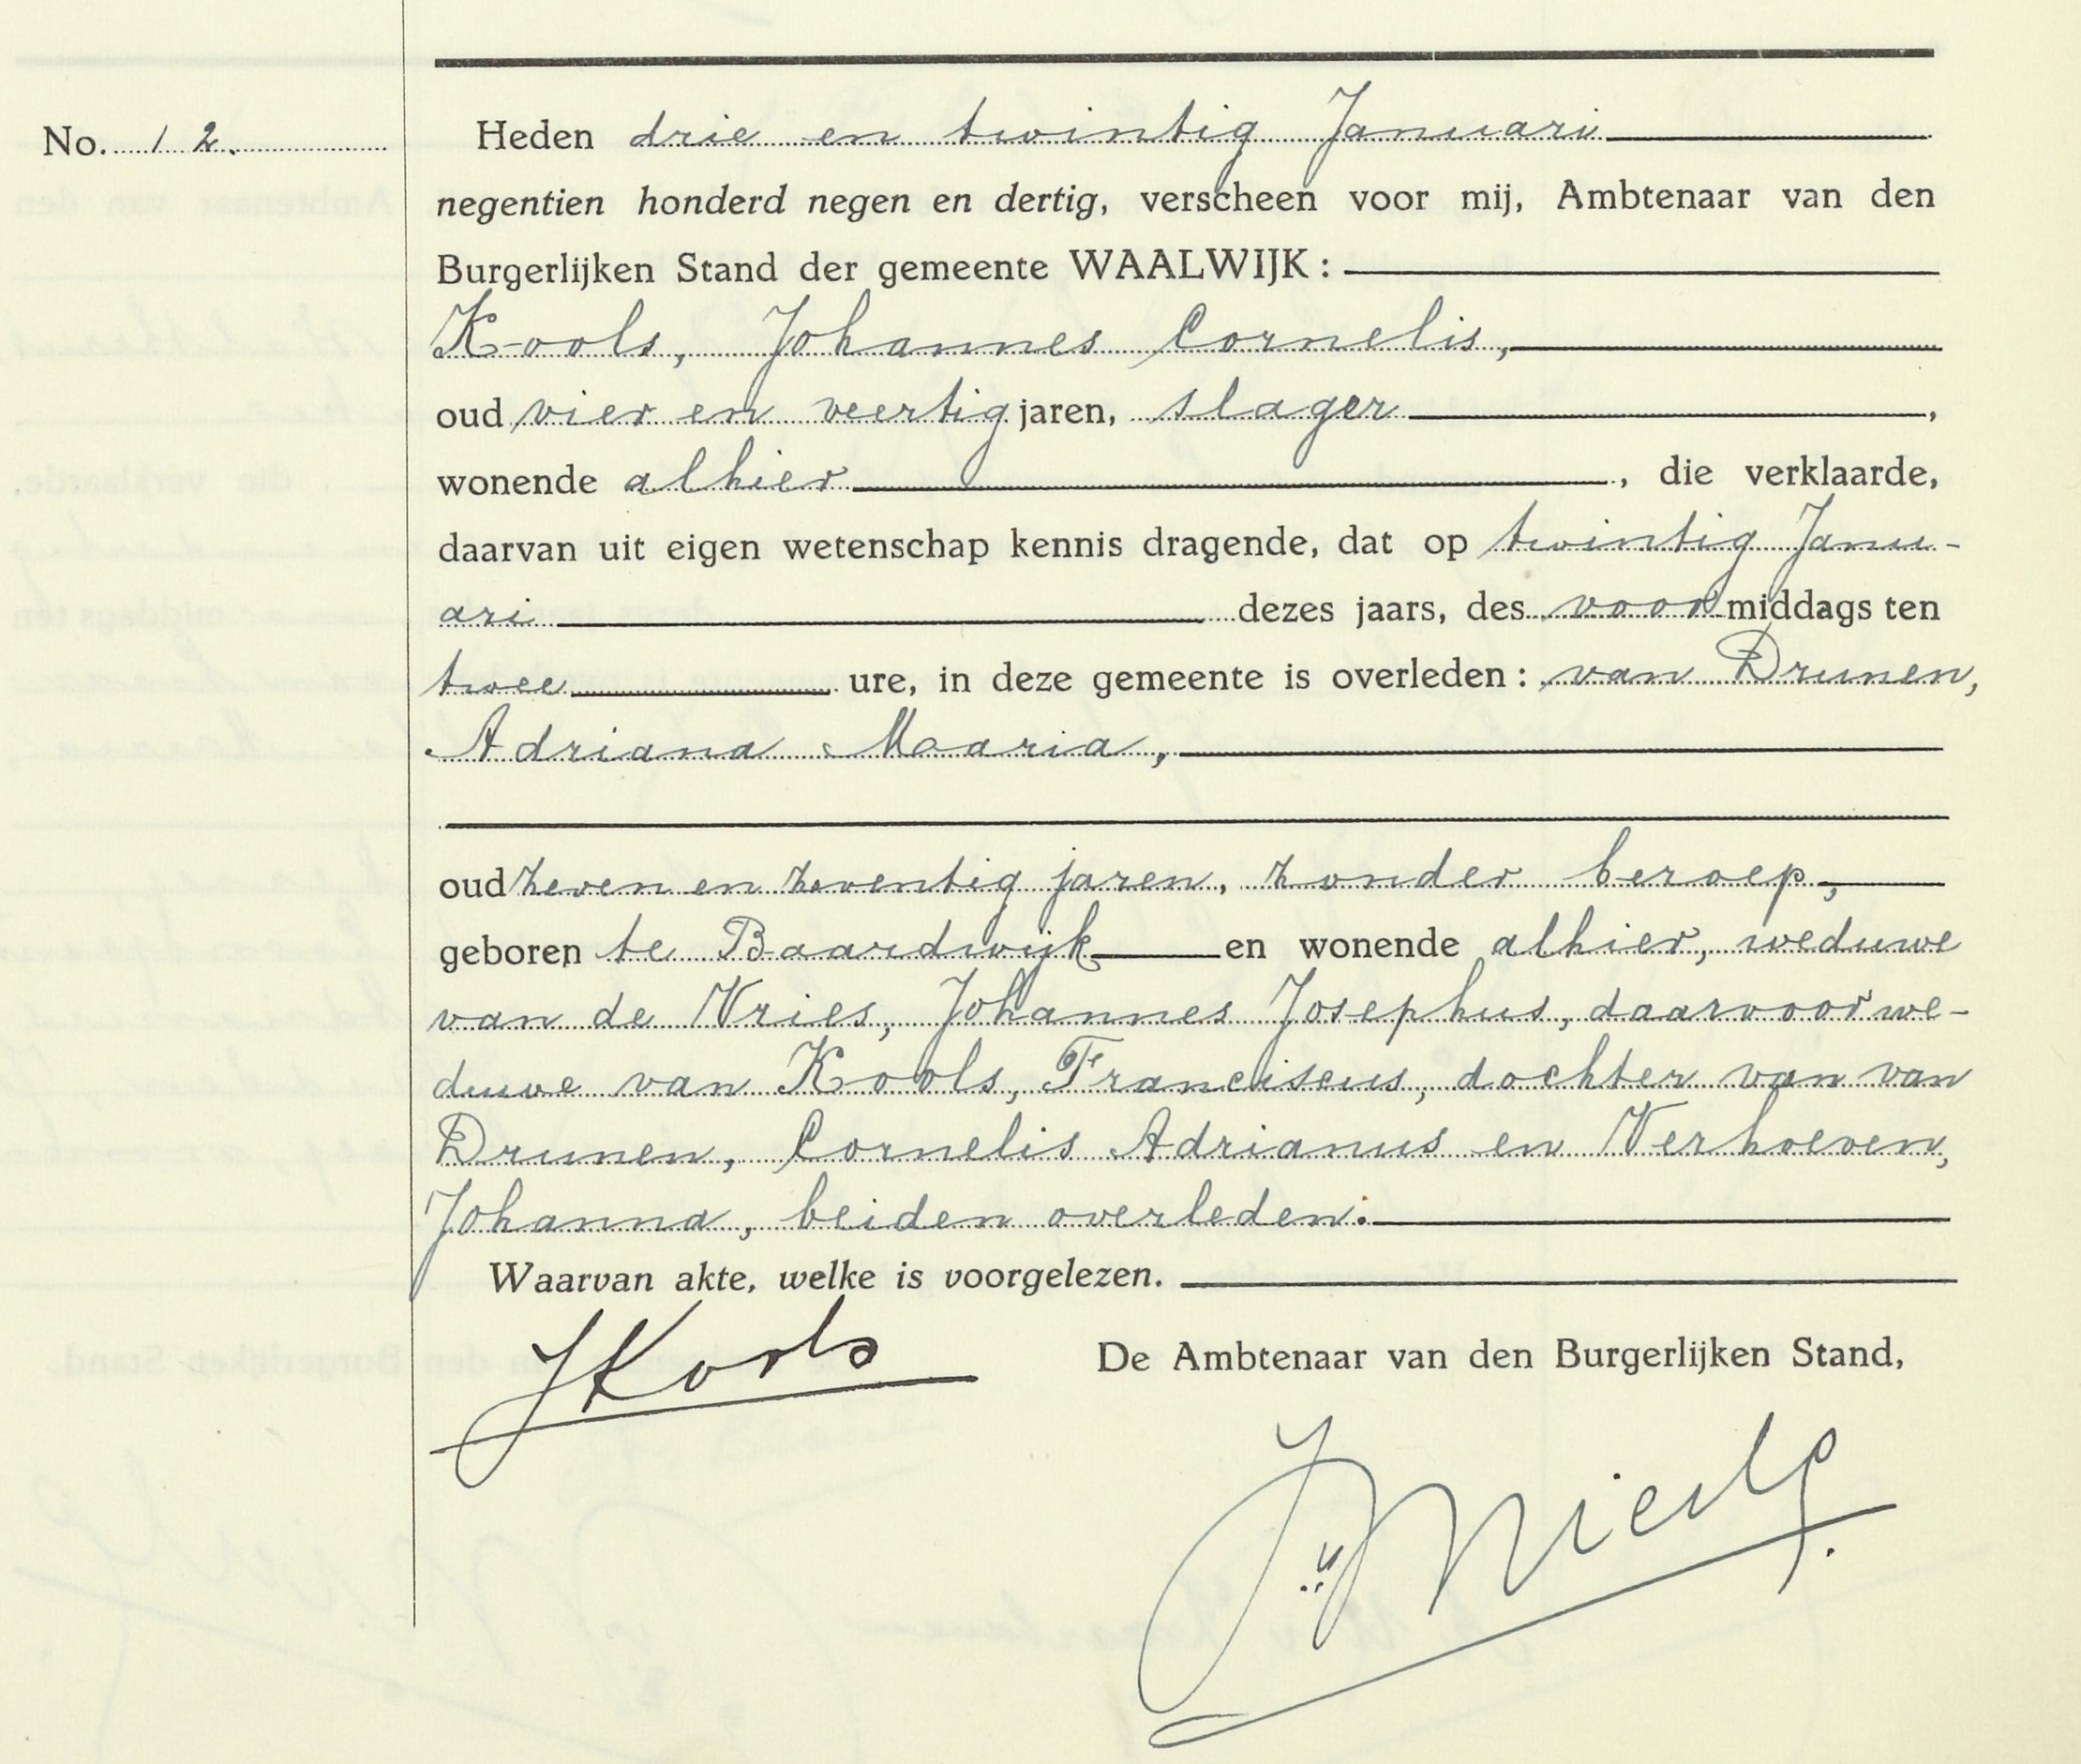 No. 12.
Heden drie en twintig Januari
negentien honderd negen en dertig, verscheen voor mij, Ambtenaar van den
Burgerlijken Stand der gemeente WAALWIJK :
Kools, Johannes Cornelis,
oud vier en veertig jaren, slager ,
wonende alhier , die verklaarde,
daarvan uit eigen wetenschap kennis dragende, dat op twintig Janu-
ari dezes jaars, des voor middags ten
twee ure, in deze gemeente is overleden : van Drunen,
Adriana Maria,
oud zeven en zeventig jaren, zonder beroep,
geboren te Baardwijk en wonende alhier, weduwe
van de Vries, Johannes Josephus, daarvoor we-
duwe van Kools, Franciscus, dochter van van
Drunen, Cornelis Adrianus en Verhoeven,
Johanna, beiden overleden.
Waarvan akte, welke is voorgelezen.
JKools
De Ambtenaar van den Burgerlijken Stand,